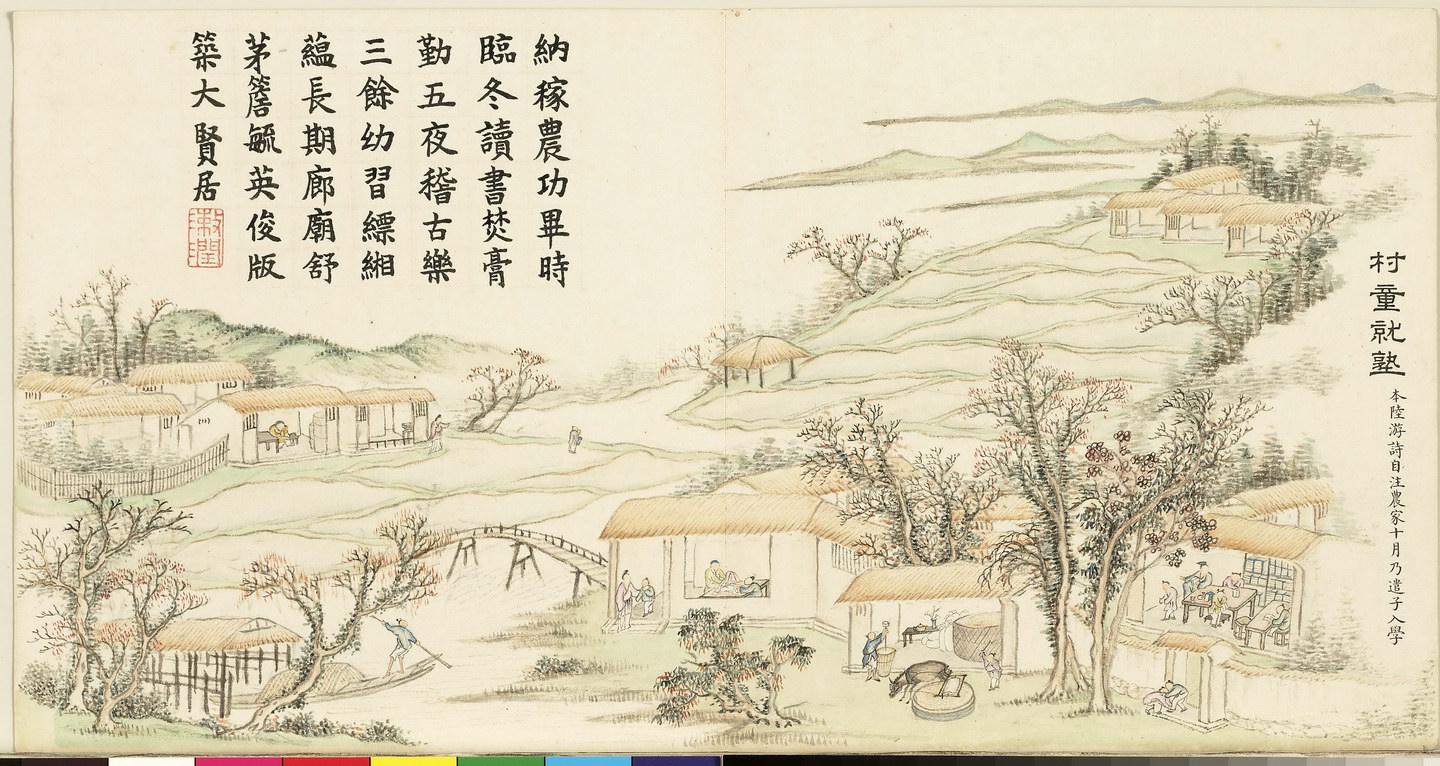 村童就塾
本陸游詩自注農家十月乃遣子入學
納稼農功畢時
臨冬讀書焚膏
勤五夜稽古樂
三餘幼習縹緗
蘊長期廊廟舒
茅簷毓英俊版
築大賢居
敕潤